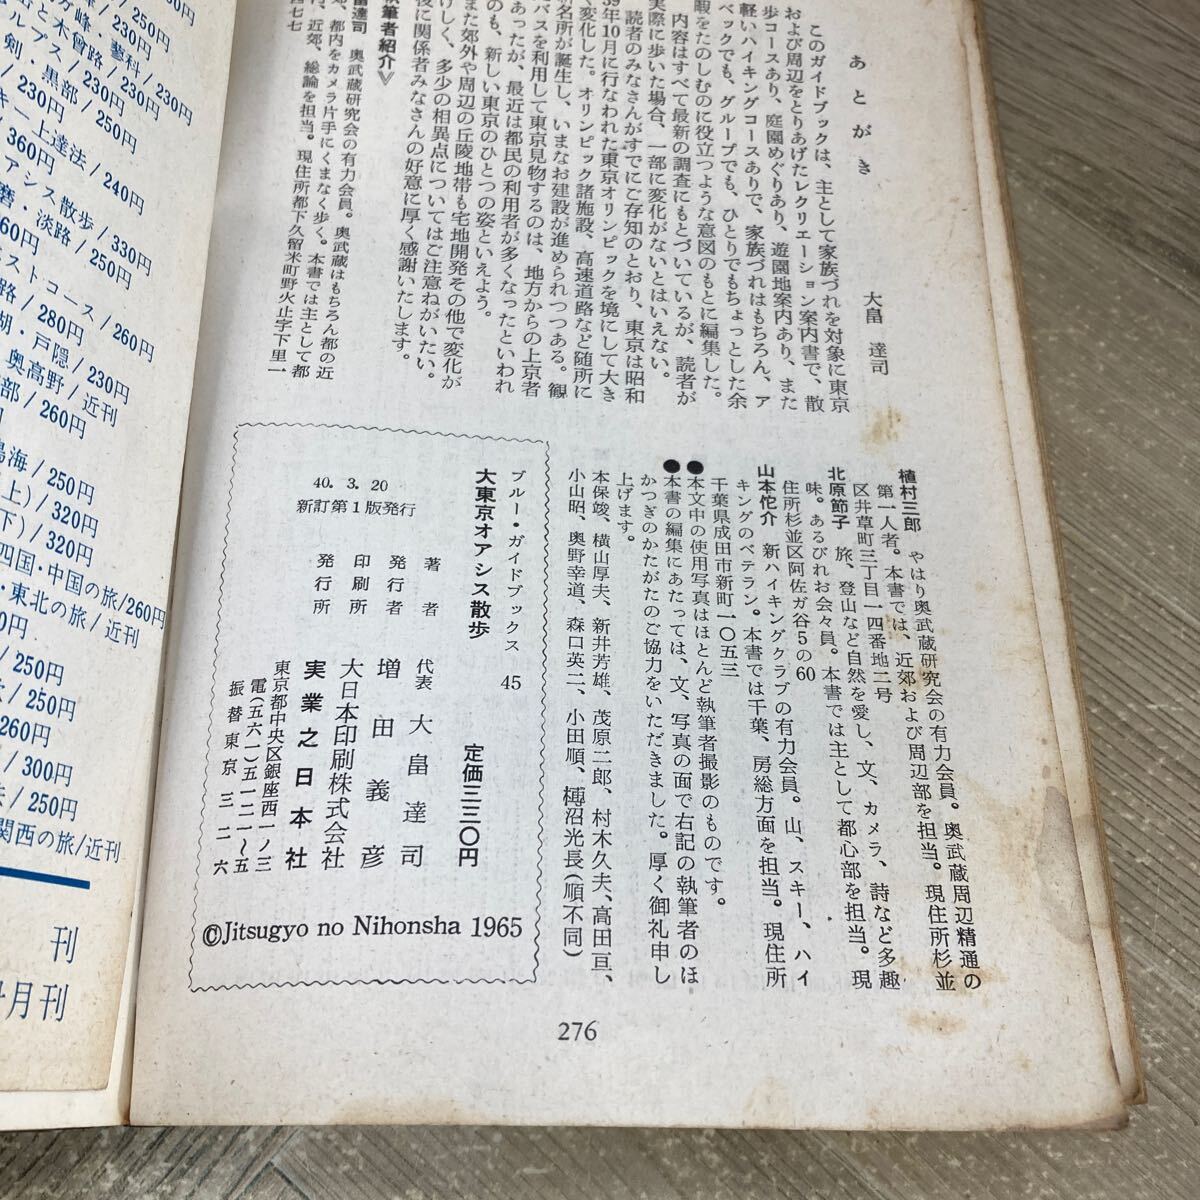 あとがき
大畠 達司
このガイドブックは、主として家族づれを対象に東京
および周辺をとりあげたレクリエーション案内書で、散
歩コースあり、庭園めぐりあり、遊園地案内あり、また
軽いハイキングコースありで、家族づれはもちろん、ア
ベックでも、グループでも、ひとりでもちょっとした余
暇をたのしむのに役立つような意図のもとに編集した。
内容はすべて最新の調査にもとづいているが、読者が
実際に歩いた場合、一部に変化がないとはいえない。
読者のみなさんがすでにご存知のとおり、東京は昭和
39年10月に行なわれた東京オリンピックを境にして大き
く変化した。オリンピック諸施設、高速道路など随所に
新名所が誕生し、いまなお建設が進められつつある。観
バスを利用して東京見物するのは、地方からの上京者
あったが、最近は都民の利用者が多くなったといわれ
のも、新しい東京のひとつの姿といえよう。
また郊外や周辺の丘陵地帯も宅地開発その他で変化が
しく、多少の相異点についてはご注意ねがいたい。
後に関係者みなさんの好意に厚く感謝いたします。
執筆者紹介≫
畠達司 奥武蔵研究会の有力会員。奥武蔵はもちろん都の近
、都内をカメラ片手にくまなく歩く。本書では主として都
、近郊、総論を担当。現住所都下久留米町野火止字下里一
四七七
植村三郎 やはり奥武蔵研究会の有力会員。奥武蔵周辺精通の
第一人者。本書では、近郊および周辺部を担当。現住所杉並
区井草町三丁目一四番地二号
北原節子 旅、登山など自然を愛し、文、カメラ、詩など多趣
味。あるびれお会々員。本書では主として都心部を担当。現
住所杉並区阿佐ガ谷5の60
山本佗介 新ハイキングクラブの有力会員。山、スキー、ハイ
キングのベテラン。本書では千葉、房総方面を担当。現住所
千葉県成田市新町一〇五三
●本文中の使用写真はほとんど執筆者撮影のものです。
●本書の編集にあたっては、文、写真の面で右記の執筆者のほ
かつぎのかたがたのご協力をいただきました。厚く御礼申し
上げます。
本保竣、横山厚夫、新井芳雄、茂原二郎、村木久夫、高田亘、
小山昭、奥野幸道、森口英二、小田順、樽沼光長(順不同)
ブルー・ガイドブックス 45
大東京オアシス散歩 定価三三〇円
40. 3. 20
新訂第1版発行
著者 代表 大畠達司
発行者 増田義彦
印刷所 大日本印刷株式会社
発行所 実業之日本社
東京都中央区銀座西一ノ三
電(五六一)五一二一〜五
振替東京三二六
©Jitsugyo no Nihonsha 1965
276
250円
峰・蓼科/250円
と木曾路/230円
ルプス/230円
剣・黒部/250円
230円
キー上達法/240円
360円
アシス散歩/330円
磨・淡路/250円
60円
ストコース/260円
路/280円
湖・戸隠/230円
奥高野/近刊
部/260円
鳥海/250円
上)/320円
下)/320円
四国・中国の旅/260円
・東北の旅/近刊
0円
/250円
/250円
260円
/300円
/250円
関西の旅/近刊
刊
月刊